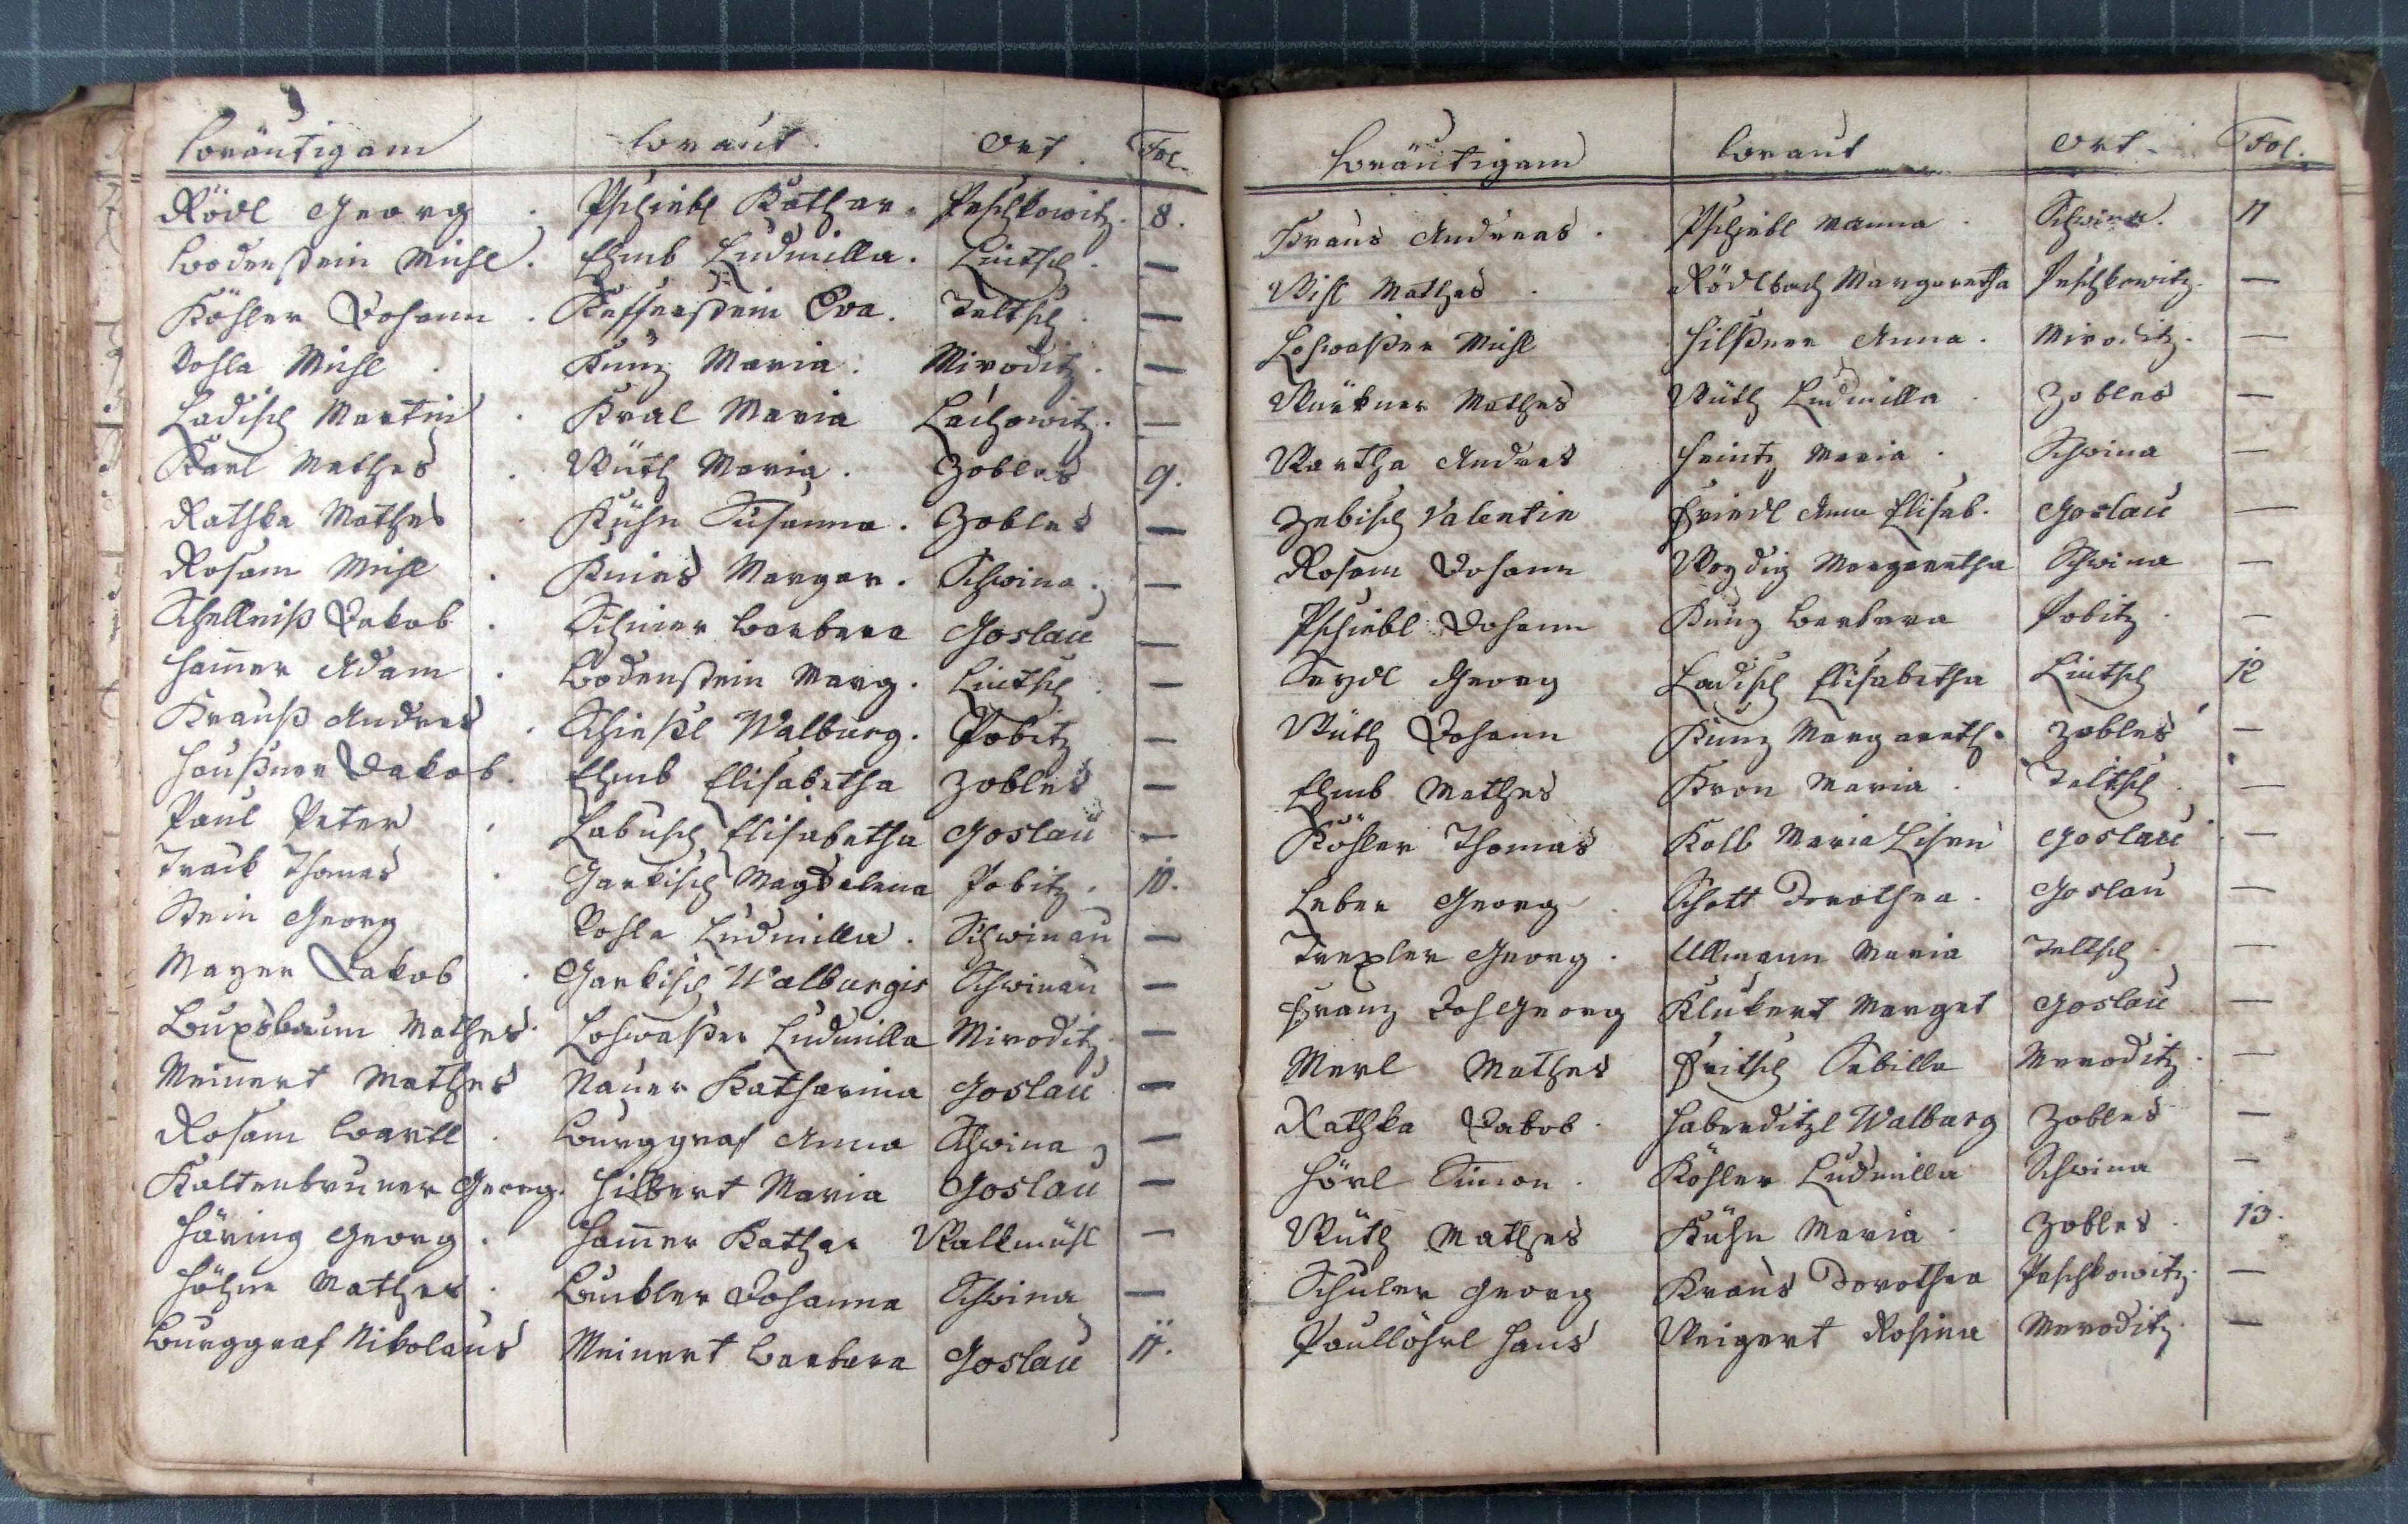 Bräutigam Braut. Ort. Fol.
Rödl Georg . Pschiebl Kathar. Peschkowitz. 8.
Bodenstein Michl. Ehmb Ludmilla. Lintsch. —
Köhler Johann . Kessenstein Eva. Teltsch. —
Rohla Michl . Kunz Maria. Miroditz. —
Ladisch Martin . Kral Maria Lachowitz. —
Karl Mathes . Wüth Maria. Zobles 9.
Rathka Mathes . Kühn Susanna. Zobles —
Rosam Michl . Knies Margar. Schwina. —
Schellniß Jakob . Schiner Barbara Goslau —
Ham̄er Adam . Bodenstein Marg. Lintsch. —
Krauß Andres . Schießl Walburg. Pobitz —
Haußner Jakob. Ehmb Elisabetha Zobles —
Paul Peter . Labusch Elisabetha Goslau —
Track Thomas . Garkisch Magdalena Pobitz. 10.
Stein Georg Rohla Ludmilla. Schwinau —
Mayer Jakob . Garkisch Walburgis Schwinau —
Buxbaum Mathes. Lohwaßer Ludmilla Miroditz. —
Meinert Mathes Nauer Katharina Goslau —
Rosam Bartl . Burggraf Anna Schwina —
Kaltenbruner Georg. Hilbert Maria Goslau —
Häring Georg . Ham̄er Kathar Walkmühl —
Höhne Mathes . Beubler Johanna Schwina —
Burggraf Nikolaus Meinert Barbara Goslau 11.
Bräutigam Braut Ort. Fol.
Kraus Andreas. Pschiebl Manna . Schwina. 11
Bihl Mathes . Rödlbach Margaretha Peschkowitz. —
Lohwaßer Michl Hilßner Anna. Miroditz. —
Würkner Mathes Wüth Ludmilla . Zobles —
Wartha Andres Heintz Maria . Schwina —
Zebisch Valentin Friedl Anna Elisab. Goslau —
Rosam Johann Woydig Margaretha Schwina —
Pschiebl Johann Kunz Barbara Pobitz . —
Seydl Georg Ladisch Elisabetha Lintsch 12
Wüth Johann Kunz Margareth. Zobles —
Ehmb Mathes Kron Maria . Teltsch. —
Köhler Thomas Kolb Maria Lisen Goslau . —
Leber Georg . Schott Dorothea. Goslau —
Trexler Georg . Ullmann Maria Teltsch. —
Franz Joh Georg Klukert Marget Goslau —
Merl Mathes Fritsch Sabilla Meroditz. —
Rathka Jakob . Haberditzl Walburg Zobles —
Hörl Simon . Köhler Ludmilla Schwina —
Wüth Mathes Kühn Maria . Zobles . 13.
Schuler Georg Kraus Dorothea Peschkowitz. —
Paullöhrl Hans Weigert Rosina Meroditz. —